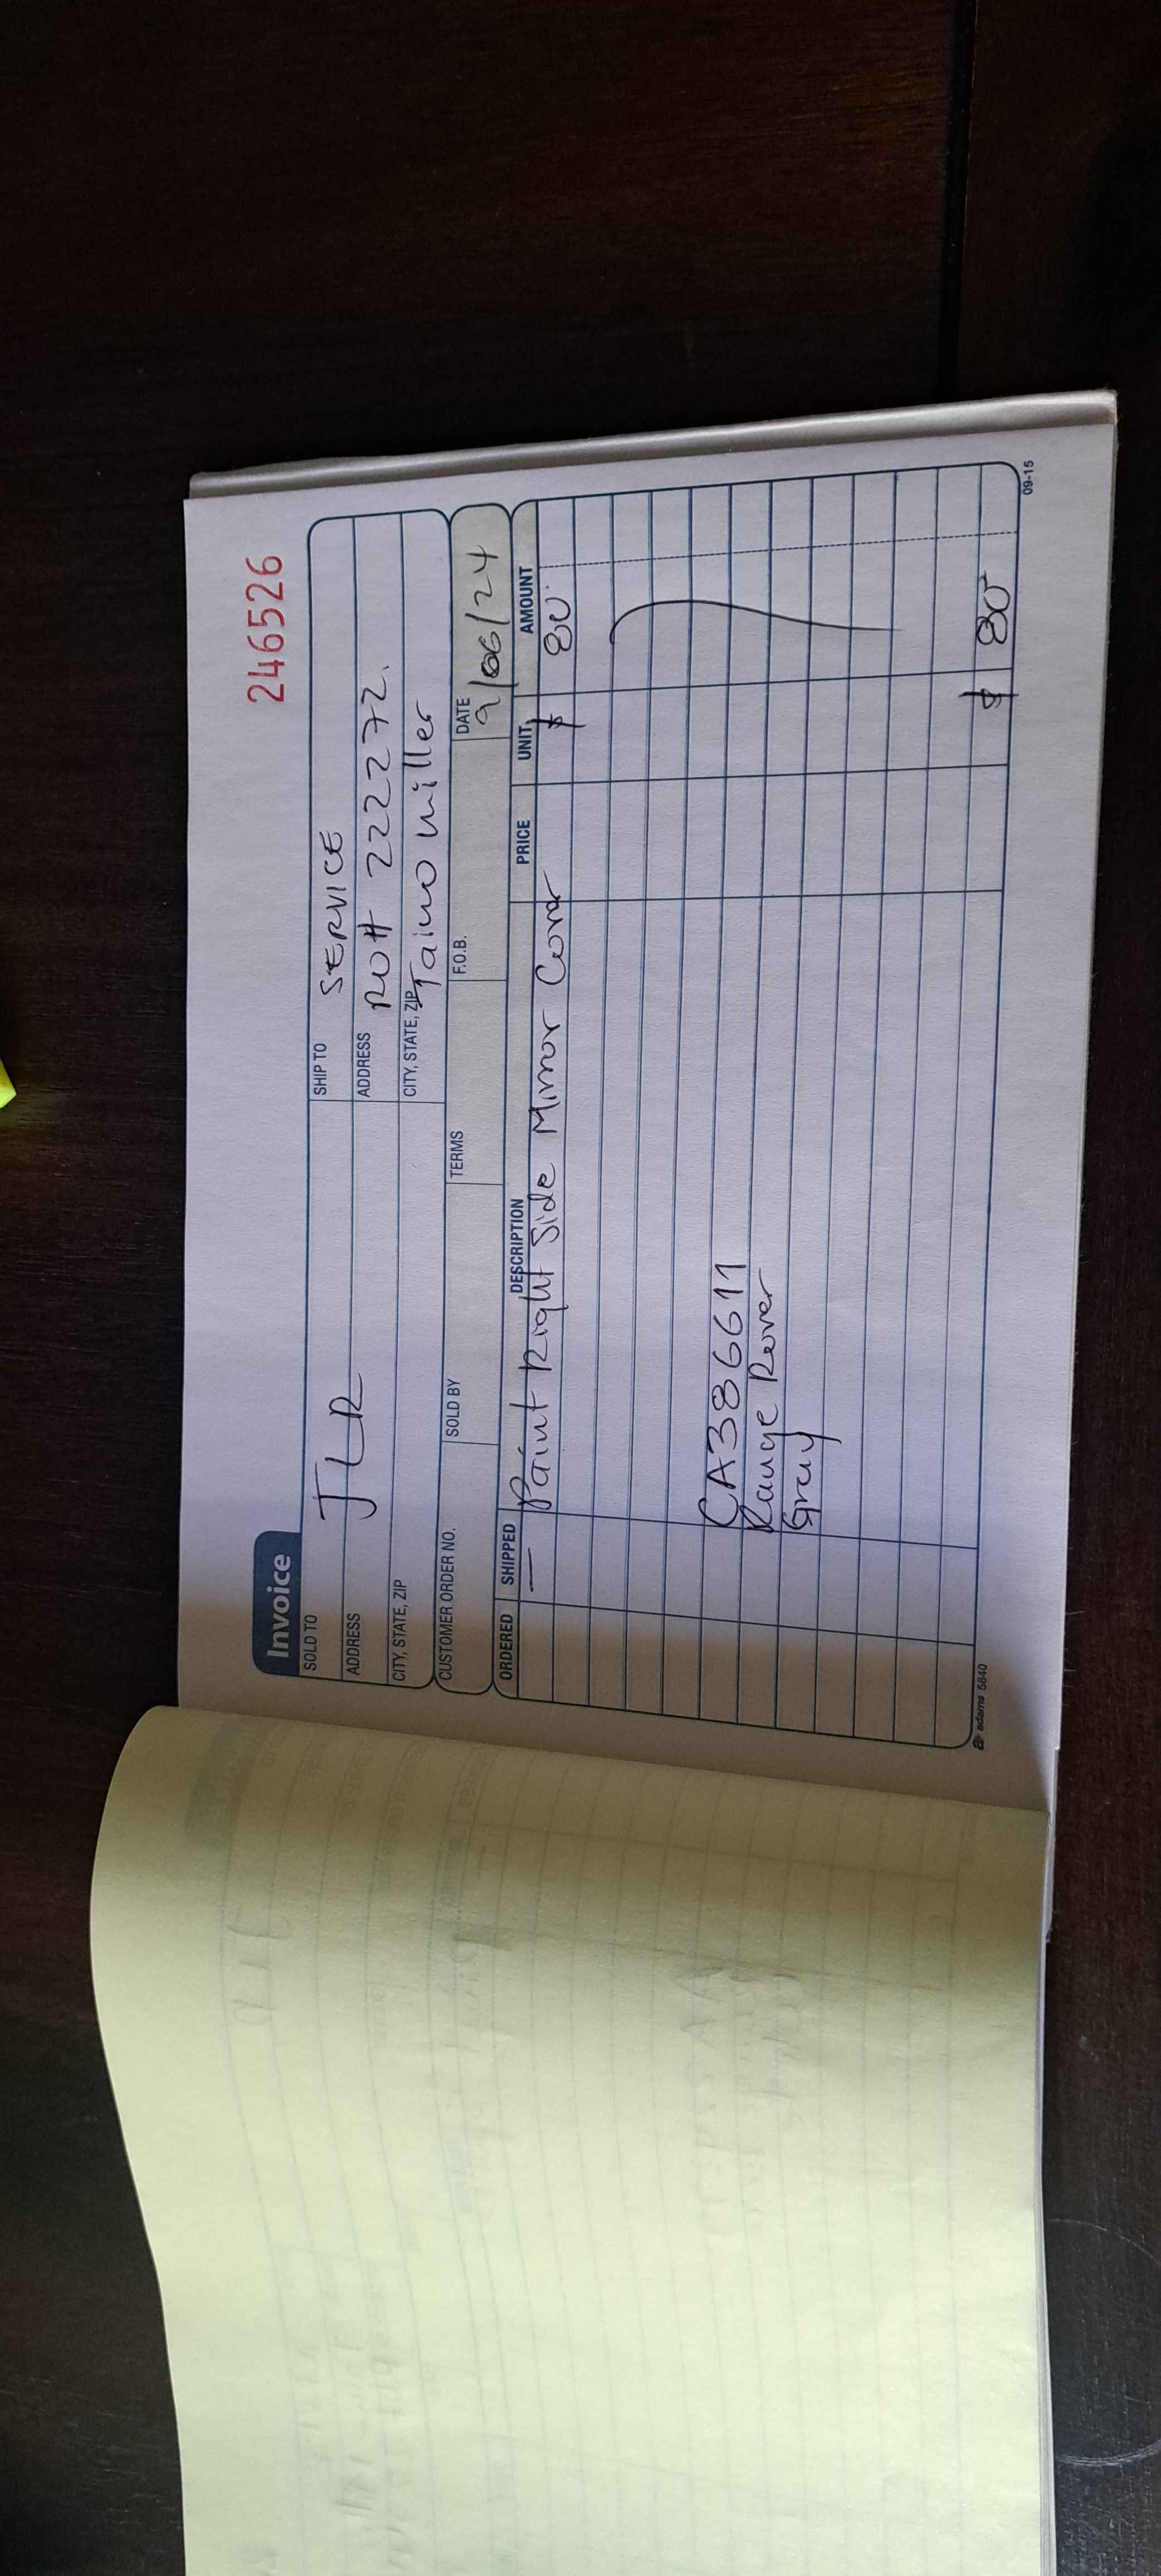 246526
Invoice
SOLD TO JLR SHIP TO SERVICE
ADDRESS ADDRESS RO# 222272.
CITY, STATE, ZIP CITY, STATE, ZIP Taino Miller
CUSTOMER ORDER NO. SOLD BY TERMS F.O.B. DATE 9/06/24
ORDERED SHIPPED DESCRIPTION PRICE UNIT AMOUNT
— Paint Right Side Mirror Cover $ 80
CA386611
Range Rover
Gray
$ 80
adams 5840 09-15